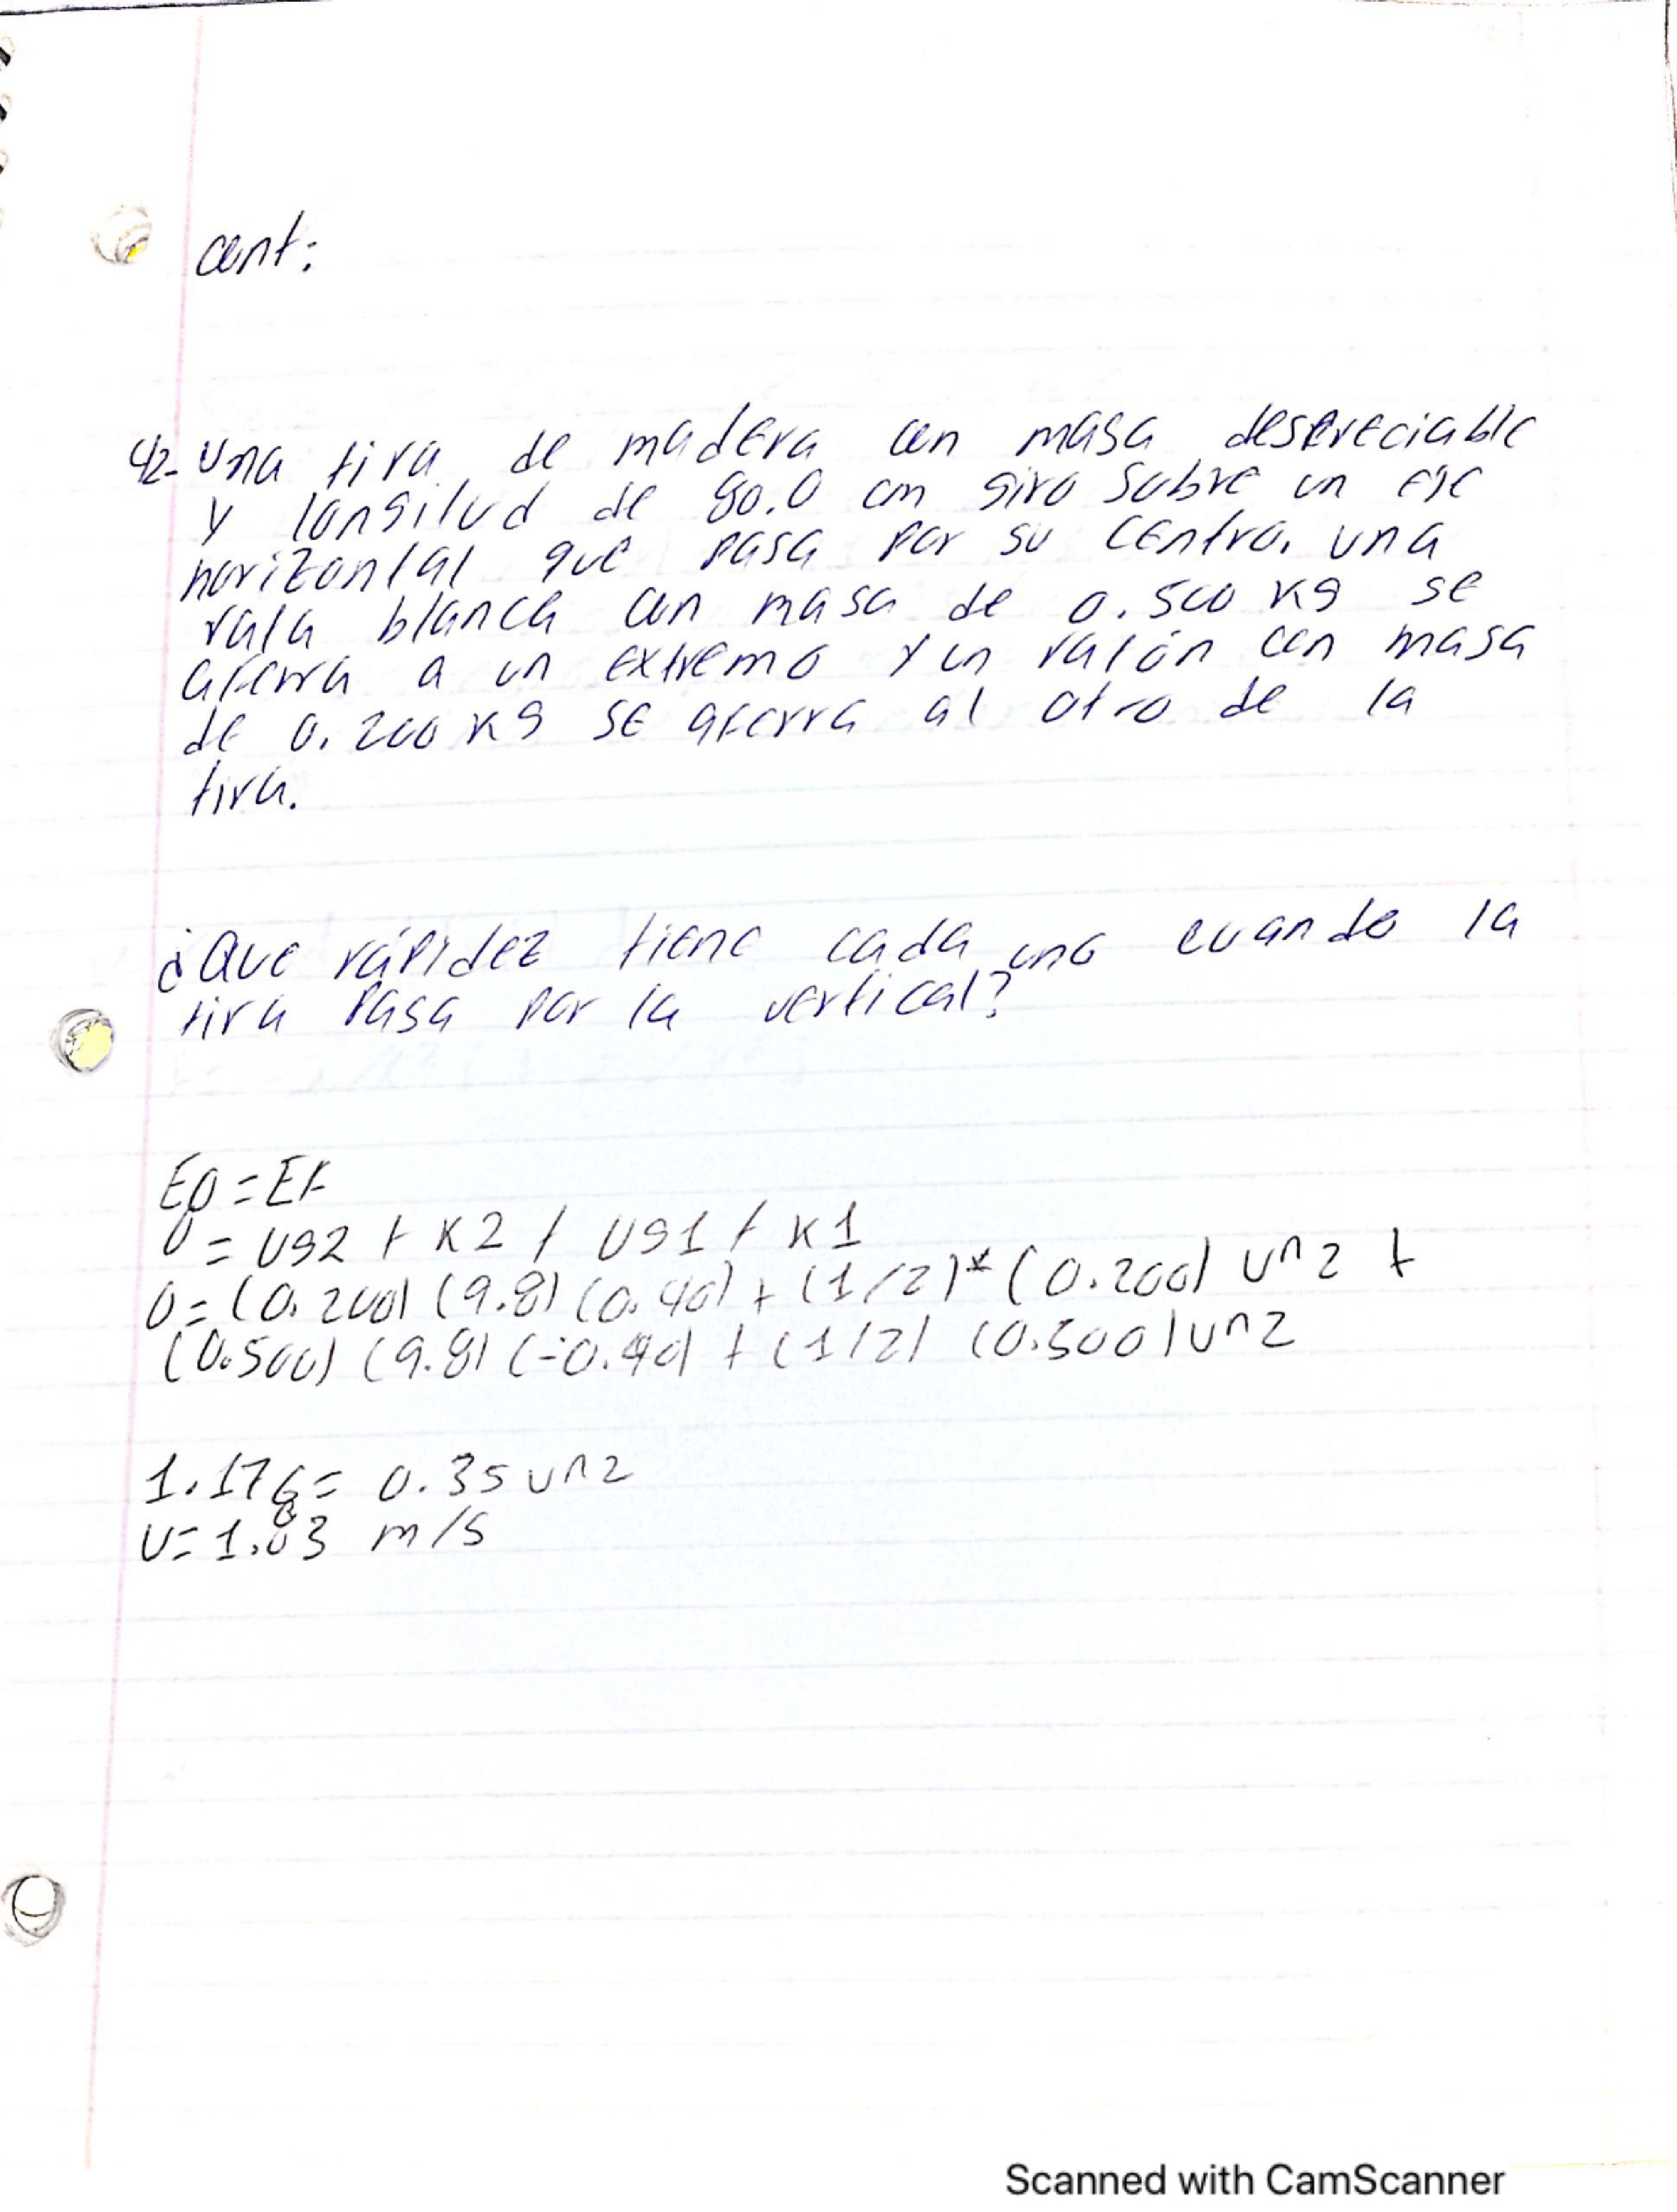 cont:
42- Una tira de madera con masa despreciable
y longitud de 80.0 cm giro sobre un eje
horizontal que pasa por su centro. una
rata blanca con masa de 0.500 kg se
aferra a un extremo y un ratón con masa
de 0.200 kg se aferra al otro de la
tira.
¿Que rápidez tiene cada uno cuando la
tira pasa por la vertical?
E0 = EF
0 = Ug2 + K2 + Ug1 + K1
0 = (0.200) (9.8) (0.40) + (1/2)*(0.200) v^2 +
(0.500) (9.8) (-0.40) + (1/2) (0.500) v^2
1.176 = 0.35 v^2
v = 1.83 m/s
Scanned with CamScanner